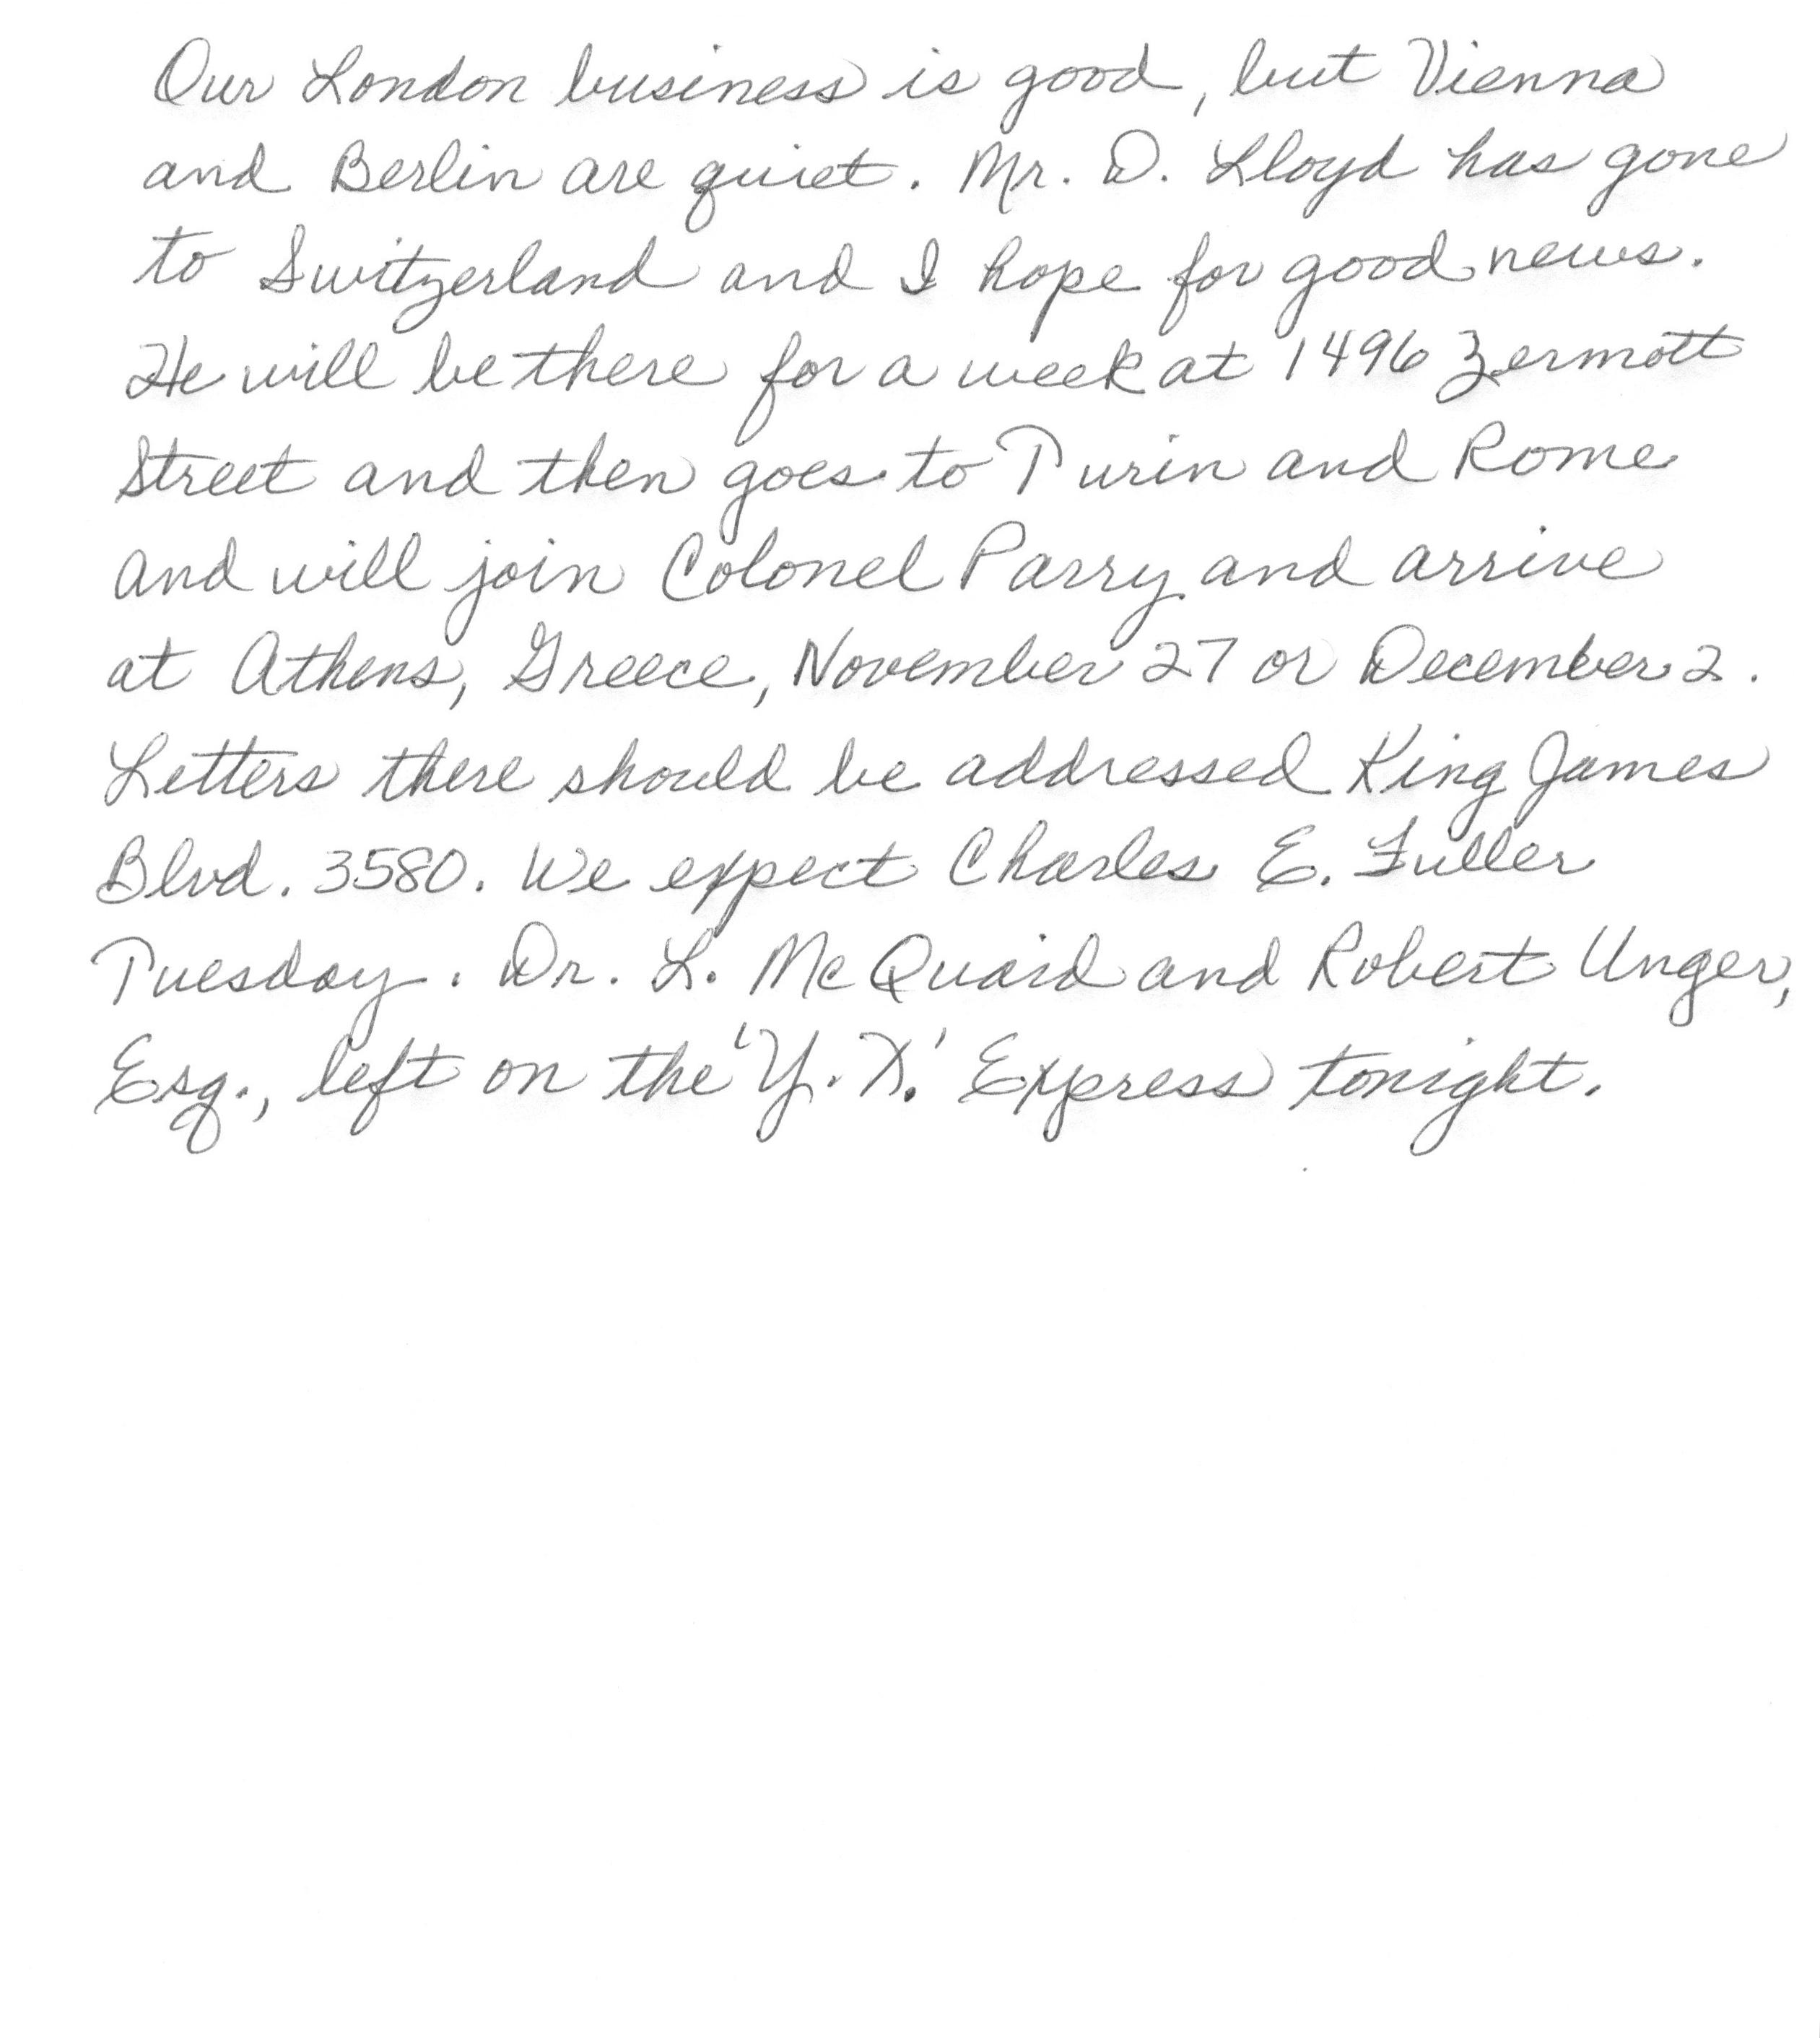 Our London business is good, but Vienna
and Berlin are quiet. Mr. D. Lloyd has gone
to Switzerland and I hope for good news.
He will be there for a week at 1496 Zermott
Street and then goes to Turin and Rome
and will join Colonel Parry and arrive
at Athens, Greece, November 27 or December 2.
Letters there should be addressed King James
Blvd. 3580. We expect Charles E. Fuller
Tuesday. Dr. L. McQuaid and Robert Unger,
Esq., left on the 'Y.X.' Express tonight.